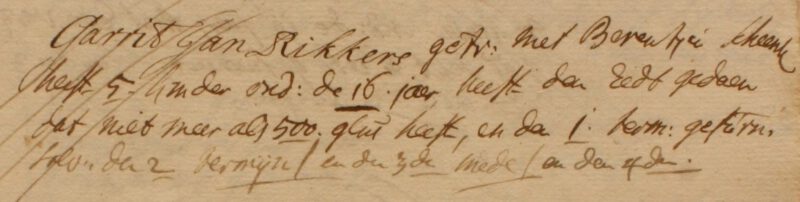 Garrit Jan Rikkers getr: met Berentjen Schenk
heeft 5. kinder ond: de 16. jaer, heeft den Eedt gedaen
dat niet meer als 500. glds heeft, en den 1. term: gefurn:
den 2 termijn / en den 3de mede / en den 4den.